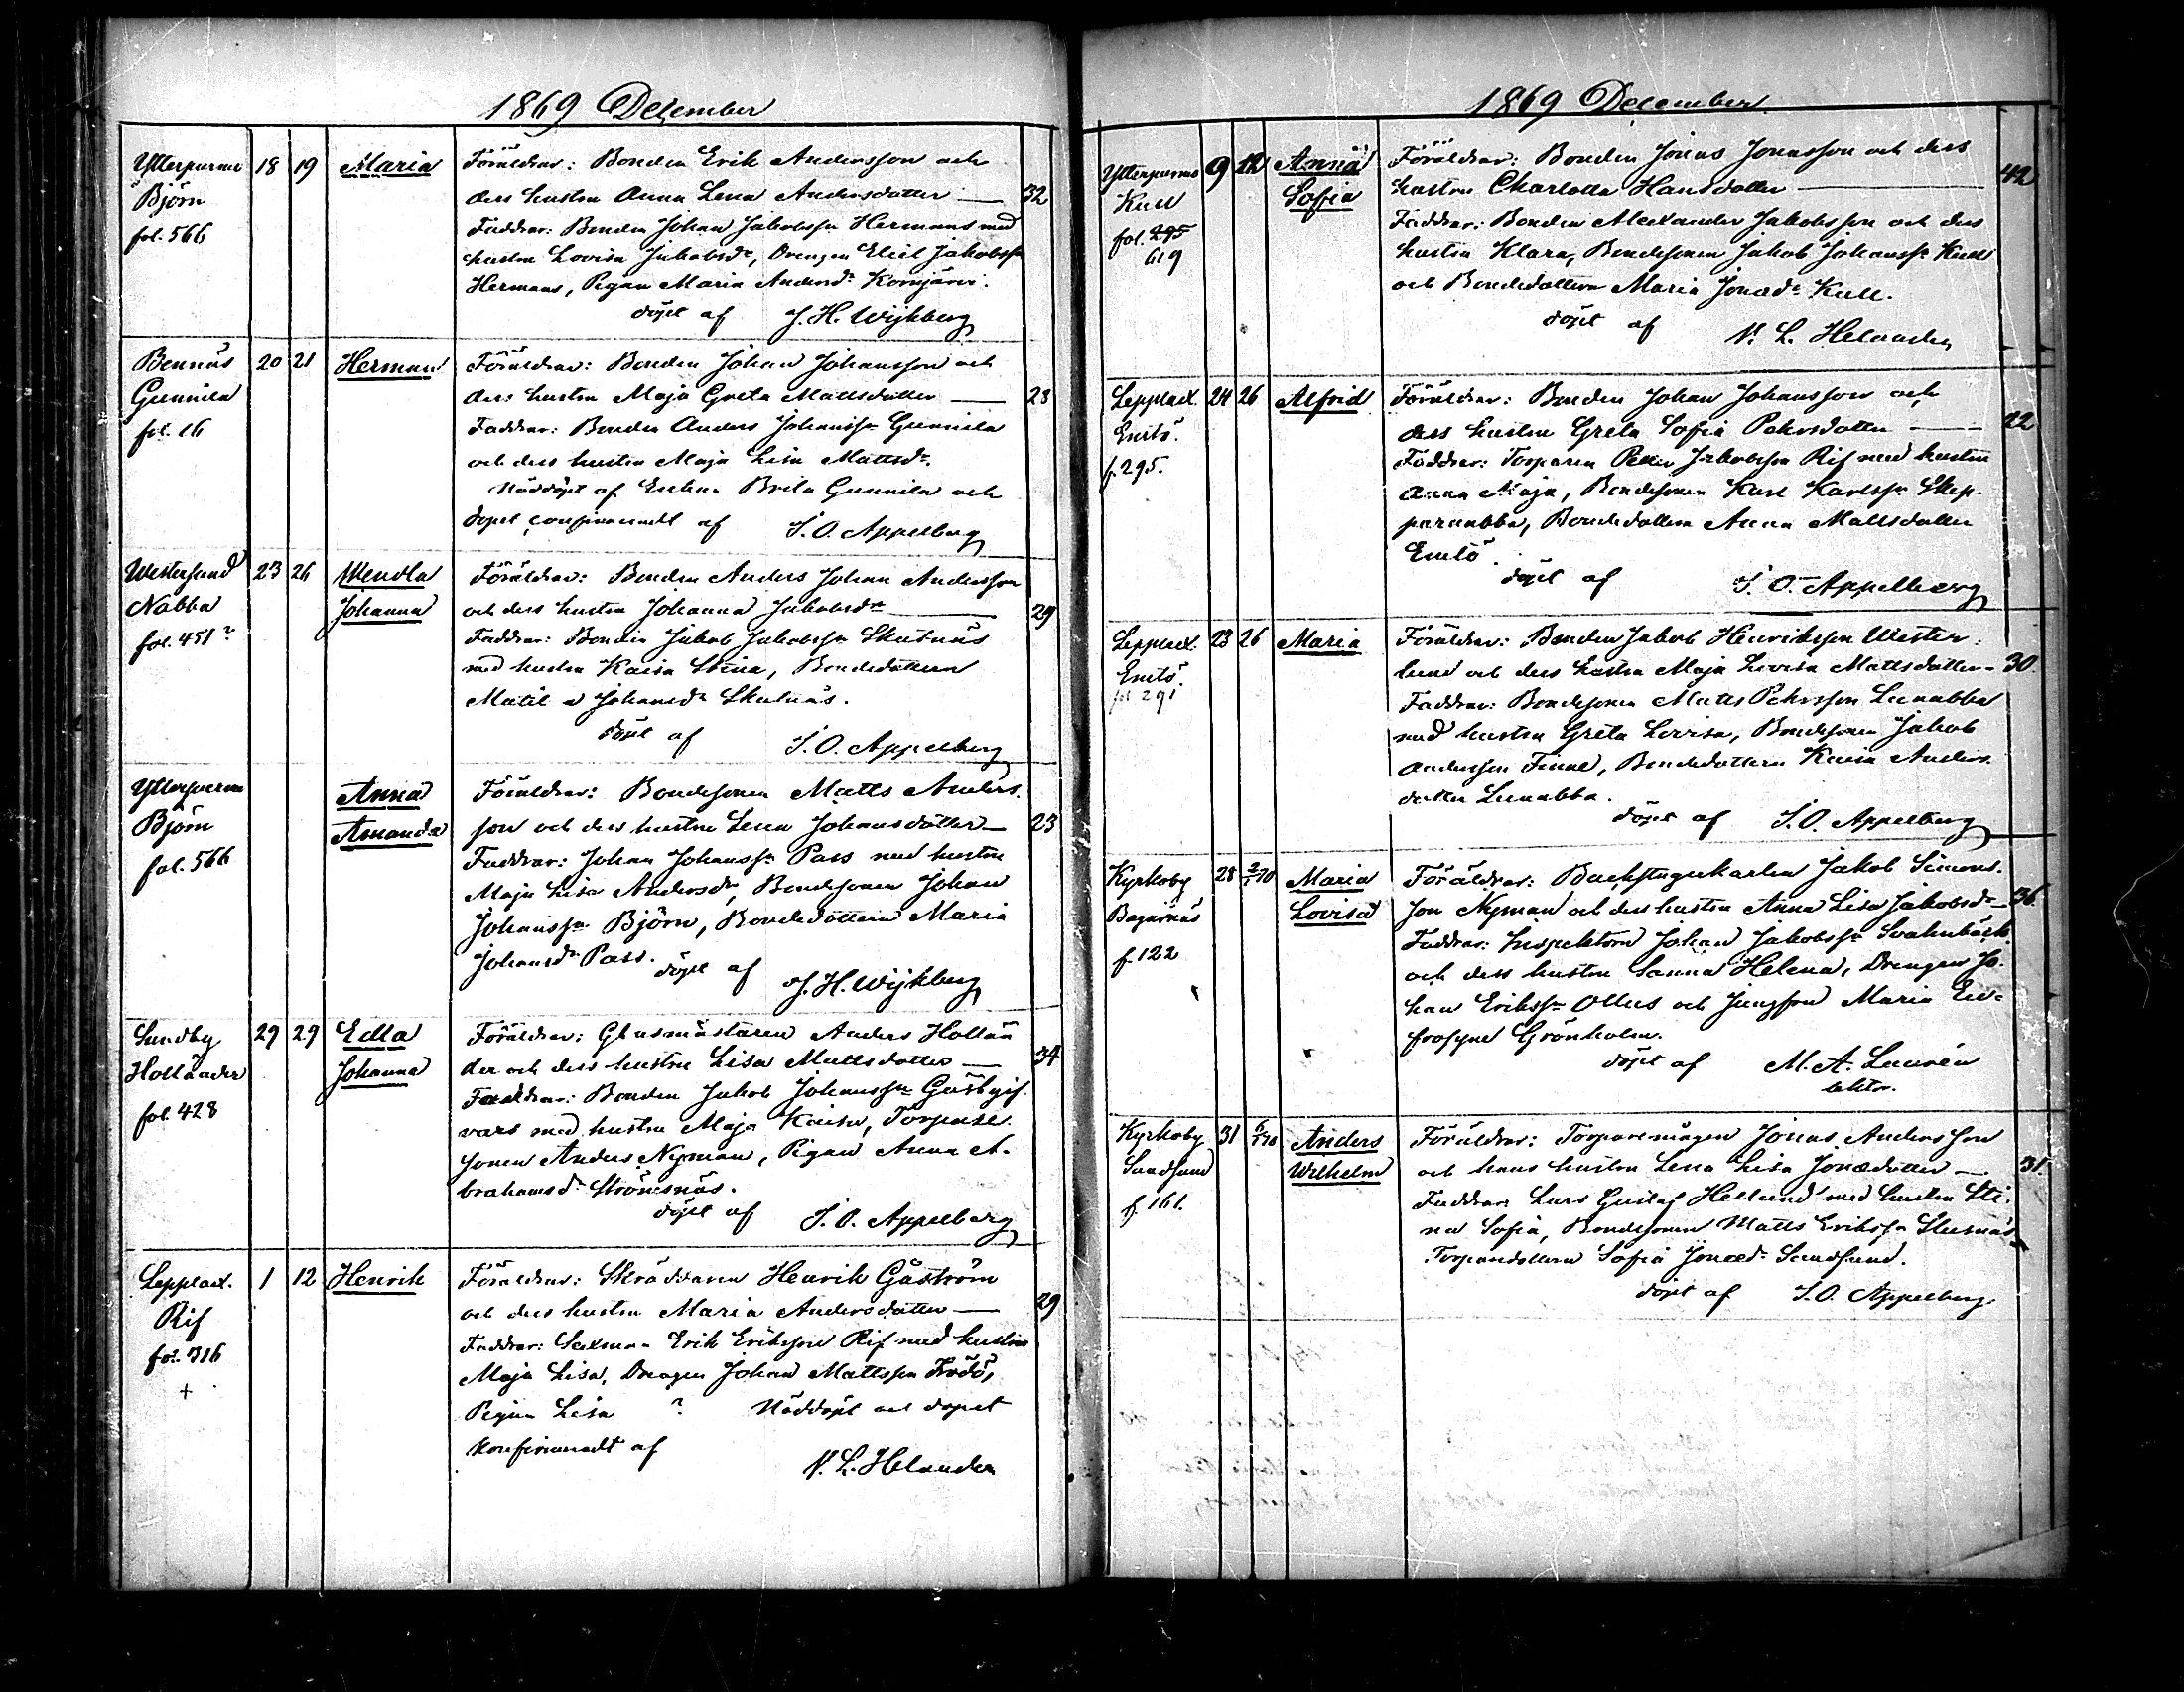 1869 December
Ytterpurmo 18 19 Maria Föräldrar: Bonden Erik Andersson och
Björn dess hustru Anna Lena Andersdotter — 32
fol. 566 Faddrar: Bonden Johan Jakobsson Hermans med
hustru Lovisa Jakobsdr, Drengen Eliel Jakobsson
Hermans, Pigan Maria Andersdr Kornjärvi.
döpt af J. H. Wijkberg
Bennäs 20 21 Herman Föräldrar: Bonden Johan Johansson och
Gunnila dess hustru Maja Greta Mattsdotter — 23
fol. 16 Faddrar: Bonden Anders Johanss. Gunnila
och dess hustru Maja Lisa Mattsdr.
Nöddöpt af Enkan Brita Gunnila och
dopet confirmeradt af J. O. Appelberg
Westersund 23 26 Wendla Föräldrar: Bonden Anders Johan Andersson
Nabba Johanna och dess hustru Johanna Jakobsdr — 29
fol. 451? Faddrar: Bonden Jakob Jakobsson Skutnäs
med hustru Kaisa Stina, Bondedottern
Matilda Johansdr Skutnäs.
döpt af J. O. Appelberg
Ytterpurmo Anna Föräldrar: Bondesonen Matts Anders-
Björn Amanda son och dess hustru Lena Johansdotter — 23
fol. 566 Faddrar: Johan Johanss. Pass med hustru
Maja Lisa Andersdr, Bondesonen Johan
Johanss. Björn, Bondedottern Maria
Johansdr Pass.
döpt af J. H. Wijkberg
Sundby 29 29 Edla Föräldrar: Glasmästaren Anders Hollän
Holländer Johanna der och dess hustru Lisa Mattsdotter — 34
fol. 428 Faddrar: Bonden Jakob Johansson Gästgif-
vars med hustru Maja Kaisa, Torpare-
sonen Anders Nyman, Pigan Anna A-
brahamsdr Strömsnäs.
döpt af J. O. Appelberg
Lepplax. 1 12 Henrik Föräldrar: Skräddaren Henrik Gåström
Rif och dess hustru Maria Andersdotter — 29
fol. 316 Faddrar: Sexman Erik Eriksson Rif med hustru
+ Maja Lisa, Drengen Johan Mattsson Fordö,
Pigan Lisa ? Nöddöpt och dopet
konfirmeradt af
N. L. Helander
1869 December
Ytterpurmo 9 12 Anna Föräldrar: Bonden Jonas Jonasson och dess
Kull Sofia hustru Charlotta Hansdotter — 42
fol. 295 Faddrar: Bonden Alexander Jakobsson och dess
619 hustru Klara, Bondesonen Jakob Johanss. Kull
och Bondedottern Maria Jonasdr Kull.
döpt af N. L. Helander
Lepplax. 24 26 Alfrid Föräldrar: Bonden Johan Johansson och
Emitö. dess hustru Greta Sofia Pehrsdotter — 22
f. 295. Faddrar: Torparen Petter Jakobsson Rif med hustru
Anna Maja, Bondesonen Karl Karlsson Skep-
parnabba, Bondedottern Anna Mattsdotter
Emitö.
döpt af J. O. Appelberg
Lepplax. 23 26 Maria Föräldrar: Bonden Jakob Henriksson Wester-
Emitö. lund och dess hustru Maja Lovisa Mattsdotter — 30.
fol 291 Faddrar: Bondesonen Matts Pehrsson Lunabba
med hustru Greta Lovisa, Bondesonen Jakob
Andersson Finne, Bondedottern Kaisa Anders
dotter Lunabba.
döpt af J. O. Appelberg
Kyrkoby 28 2/1 70 Maria Föräldrar: Backstugukarlen Jakob Simons-
Bagarnäs Lovisa son Nyman och dess hustru Anna Lisa Jakobsdr — 36.
f. 122 Faddrar: Inspektorn Johan Jakobsson Svahnbäck
och dess hustru Sanna Helena, Drengen Jo-
han Erikss. Ollus och Jungfrun Maria Eu-
frosyne Grönholm.
döpt af M. A. Laurén
Kyrkoby 31 6/1 70 Anders Föräldrar: Torparemågen Jonas Andersson
Sandsund Wilhelm och hans hustru Lena Lisa Jonædotter — 31.
f. 161. Faddrar: Lars Gustaf Hellund med hustru Sti-
na Sofia, Bondesonen Matts Eriksson Slusnäs
Torparedottern Sofia Jonædr Sandsund.
döpt af J. O. Appelberg.